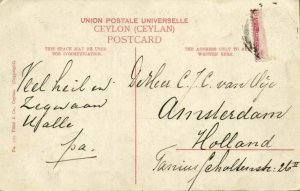 UNION POSTALE UNIVERSELLE
CEYLON (CEYLAN)
POSTCARD
THIS SPACE MAY BE USED
FOR COMMUNICATION.
THE ADDRESS ONLY TO
WRITTEN HERE.
Veel heil en
Zegen aan
U alle
pa.
De Heer C. J. C. van
Amsterdam
Holland